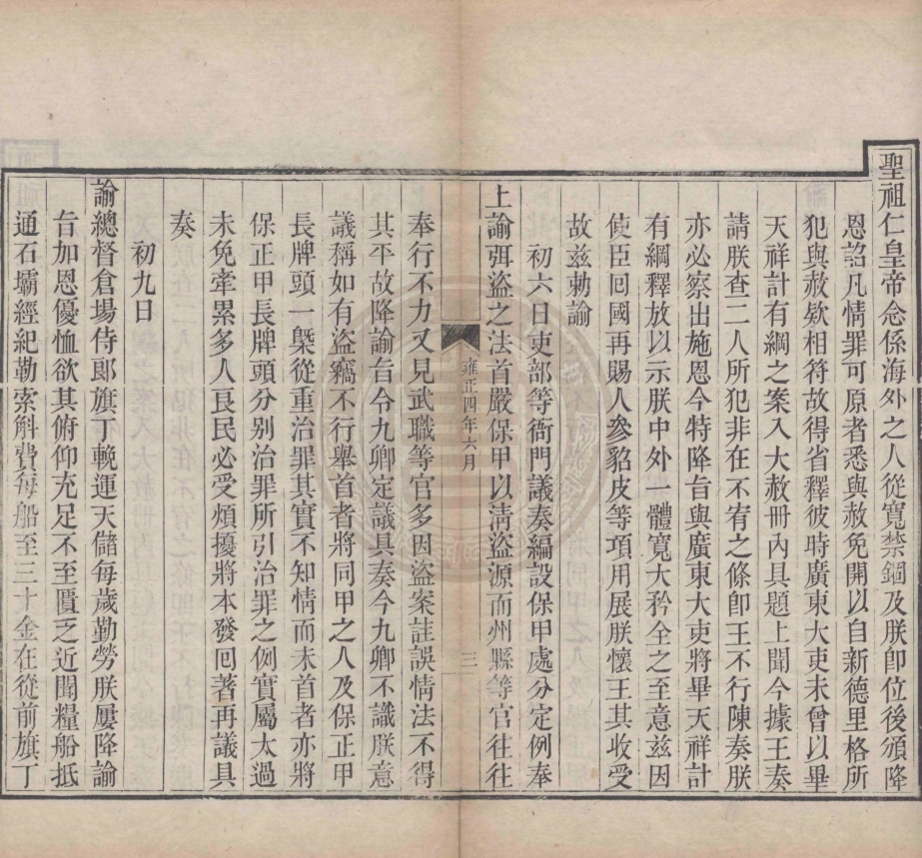 聖祖仁皇帝念係海外之人從寬禁錮及朕卽位後頒降
恩詔凡情罪可原者悉與赦免開以自新德里格所
犯與赦欵相符故得省釋彼時廣東大吏未曾以畢
天祥計有綱之案入大赦冊內具題上聞今據王奏
請朕查二人所犯非在不宥之條卽王不行陳奏朕
亦必察出施恩今特降旨與廣東大吏將畢天祥計
有綱釋放以示朕中外一體寬大矜全之至意茲因
使臣回國再賜人參貂皮等項用展朕懷王其收受
故茲勅諭
初六日吏部等衙門議奏編設保甲處分定例奉
上諭弭盜之法首嚴保甲以淸盜源而州縣等官往往
雍正四年六月
三
奉行不力又見武職等官多因盜案註誤情法不得
其平故降諭旨令九卿定議具奏今九卿不識朕意
議稱如有盜竊不行舉首者將同甲之人及保正甲
長牌頭一槩從重治罪其實不知情而未首者亦將
保正甲長牌頭分别治罪所引治罪之例實屬太過
未免牽累多人良民必受煩擾將本發回著再議具
奏
初九日
諭總督倉場侍郎旗丁輓運天儲每歲勤勞朕屢降諭
旨加恩優恤欲其俯仰充足不至匱乏近聞糧船抵
通石壩經紀勒索斛費每船至三十金在從前旗丁